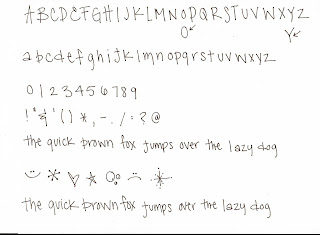 ABCDEFGHIJKLMNOPQRSTUVWXYZ
O Y
abcdefghijklmnopqrstuvwxyz
0123456789
! " & ' ( ) * , - . / : ? @
the quick brown fox jumps over the lazy dog
the quick brown fox jumps over the lazy dog